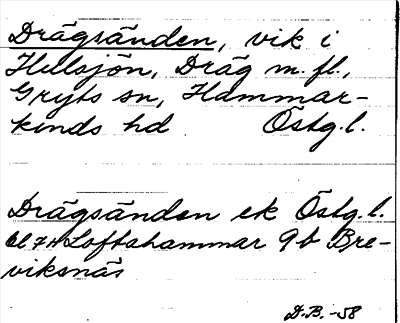 Drägsänden, vik i
Hullsjön, Dräg m. fl.,
Gryts sn, Hammar-
kinds hd Östg. l.
Drägsänden ek Östg. l.
Loftahammar 9b Bre-
viksnäs
D.B. -58